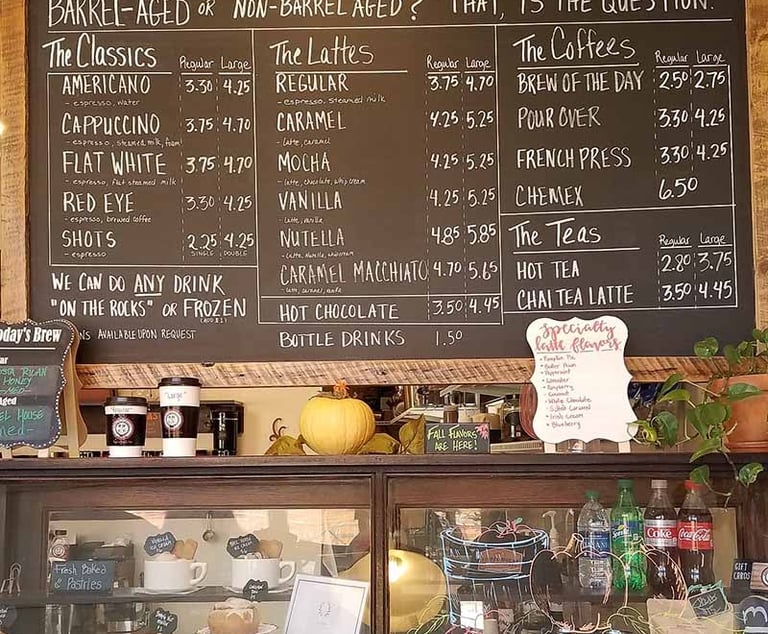 BARREL-AGED OR NON-BARREL AGED? THAT, IS THE QUESTION.
The Classics Regular Large
AMERICANO 3.30 4.25
- espresso, water
CAPPUCCINO 3.75 4.70
- espresso, steamed milk, foam
FLAT WHITE 3.75 4.70
- espresso, flat steamed milk
RED EYE 3.30 4.25
- espresso, brewed coffee
SHOTS 2.25 4.25
- espresso SINGLE DOUBLE
WE CAN DO ANY DRINK
"ON THE ROCKS" OR FROZEN
AVAILABLE UPON REQUEST
The Lattes Regular Large
REGULAR 3.75 4.70
- espresso, steamed milk
CARAMEL 4.25 5.25
- latte, caramel
MOCHA 4.25 5.25
- latte, chocolate, whip cream
VANILLA 4.25 5.25
- latte, vanilla
NUTELLA 4.85 5.85
- latte, Nutella,
CARAMEL MACCHIATO 4.70 5.65
HOT CHOCOLATE 3.50 4.45
BOTTLE DRINKS 1.50
The Coffees Regular Large
BREW OF THE DAY 2.50 2.75
POUR OVER 3.30 4.25
FRENCH PRESS 3.30 4.25
CHEMEX 6.50
The Teas Regular Large
HOT TEA 2.80 3.75
CHAI TEA LATTE 3.50 4.45
oday's Brew
RICAN
HONEY
HOUSE
"Regular"
"Large"
FALL FLAVORS
ARE HERE!
Specialty
latte flavors
- Pumpkin Pie
- Butter Pecan
- Peppermint
- Lavender
- Raspberry
- Coconut
- White Chocolate
- Salted Caramel
- Irish Cream
- Blueberry
Fresh Baked
& Pastries
VANILLA
ICE CREAM
ICE CREAM
DASANI
Sprite
Coke
Coca-Cola
GIFT
CARDS